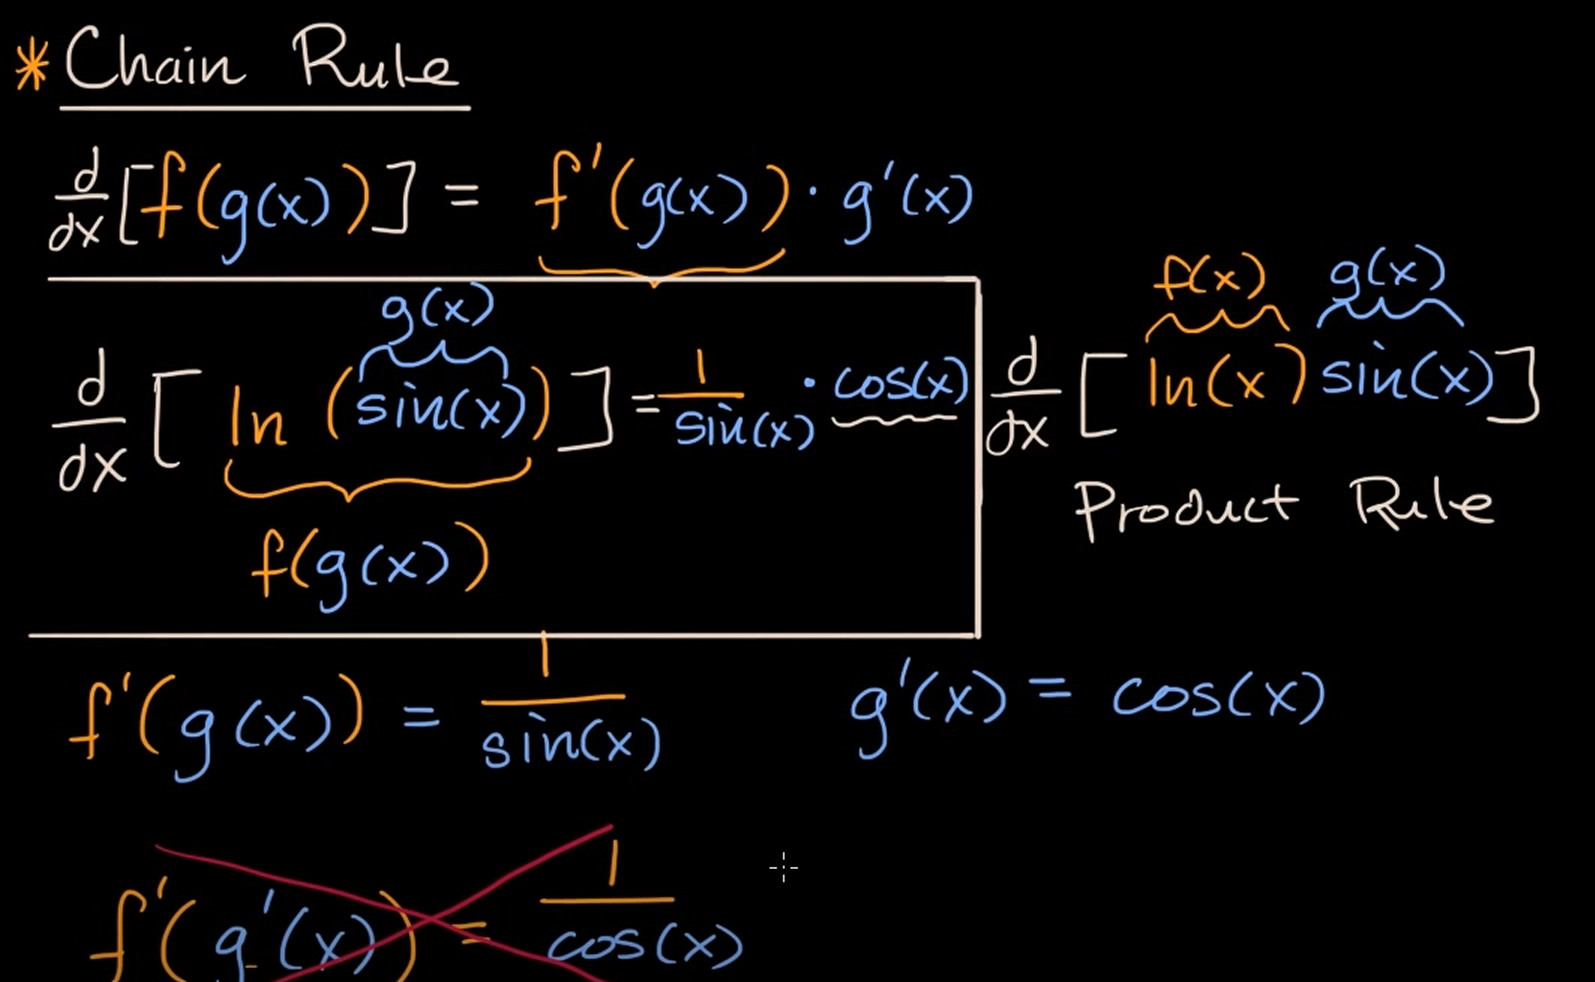 * Chain Rule
d/dx [f(g(x))] = f'(g(x)) · g'(x)
g(x)
d/dx [ ln (sin(x)) ] = 1/sin(x) · cos(x)
f(g(x))
f(x) g(x)
d/dx [ ln(x) sin(x) ]
Product Rule
f'(g(x)) = 1/sin(x)
g'(x) = cos(x)
f'(g'(x)) = 1/cos(x)